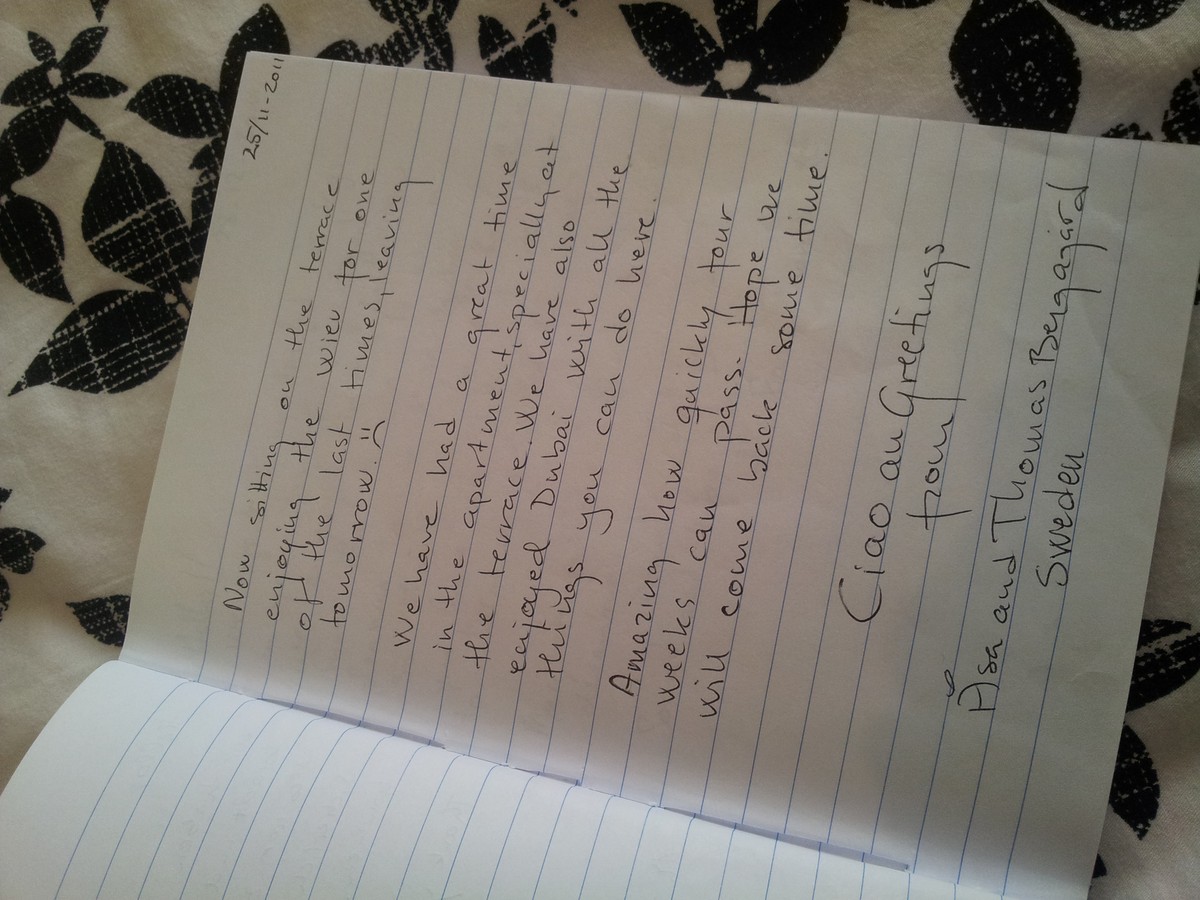 25/11-2011
Now sitting on the terrace
enjoying the wiev for one
of the last times, leaving
tomorrow. :(
We have had a great time
in the apartment, specially at
the terrace. We have also
enjoyed Dubai with all the
things you can do here.
Amazing how quickly four
weeks can pass. Hope we
will come back some time.
Ciao an Greetings
from
Åsa and Thomas Bergagård
Sweden